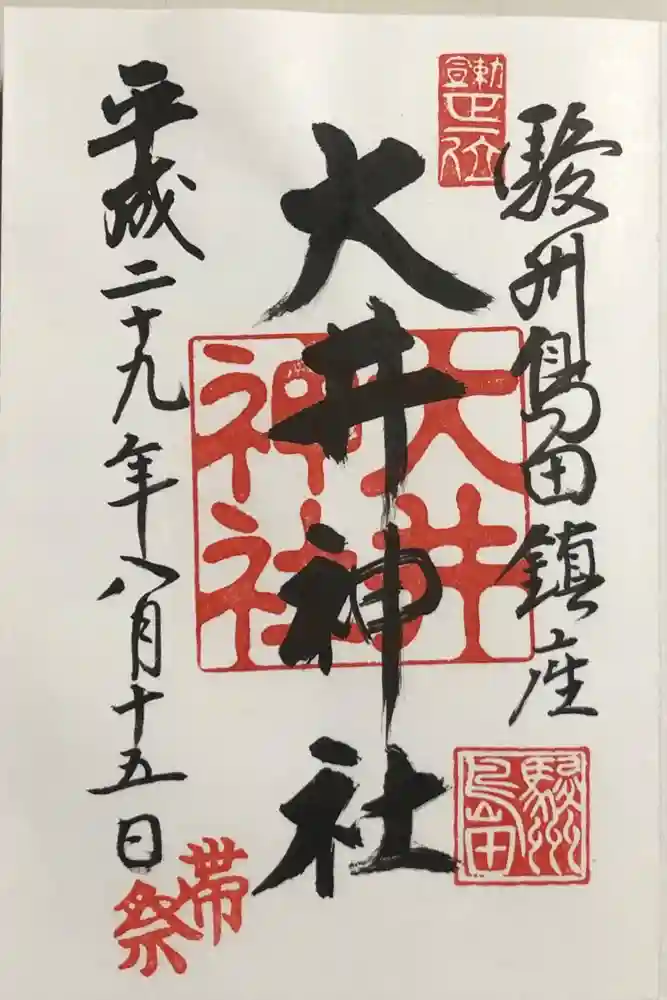 勅宣
正一位
駿州島田鎮座
駿州
島田
大井神社
大井
神社
平成二十九年八月十五日
帯
祭